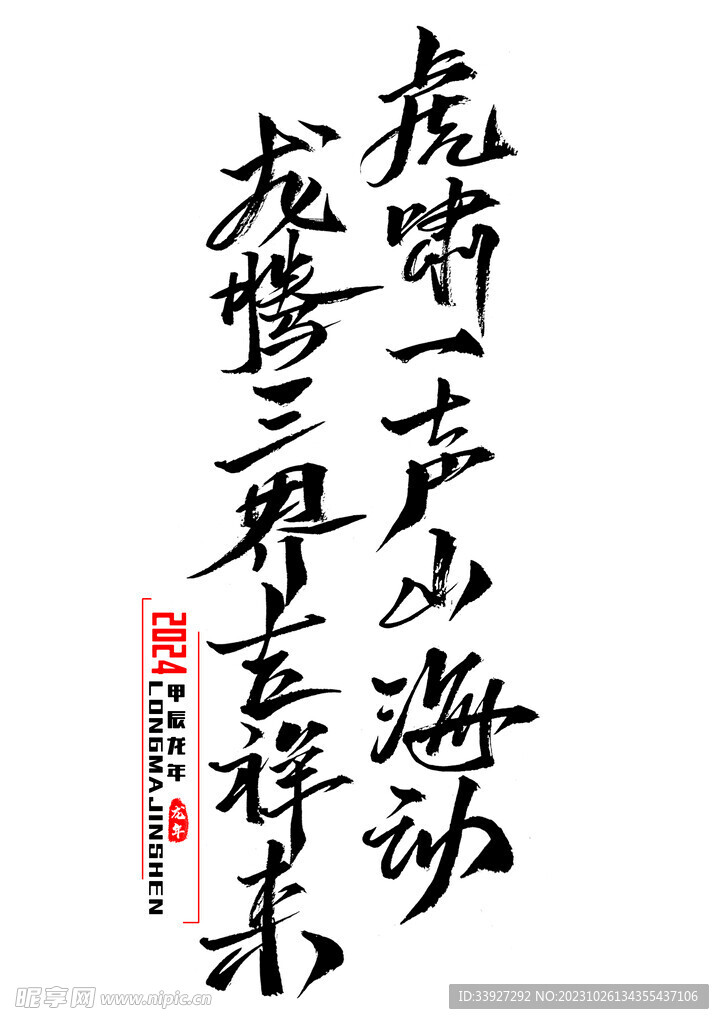 虎啸一声山海动
龙腾三界吉祥来
2024
甲辰龙年
龙年
LONGMAJINSHEN
昵享网 www.nipic.cn
ID:33927292 NO:20231026134355437106